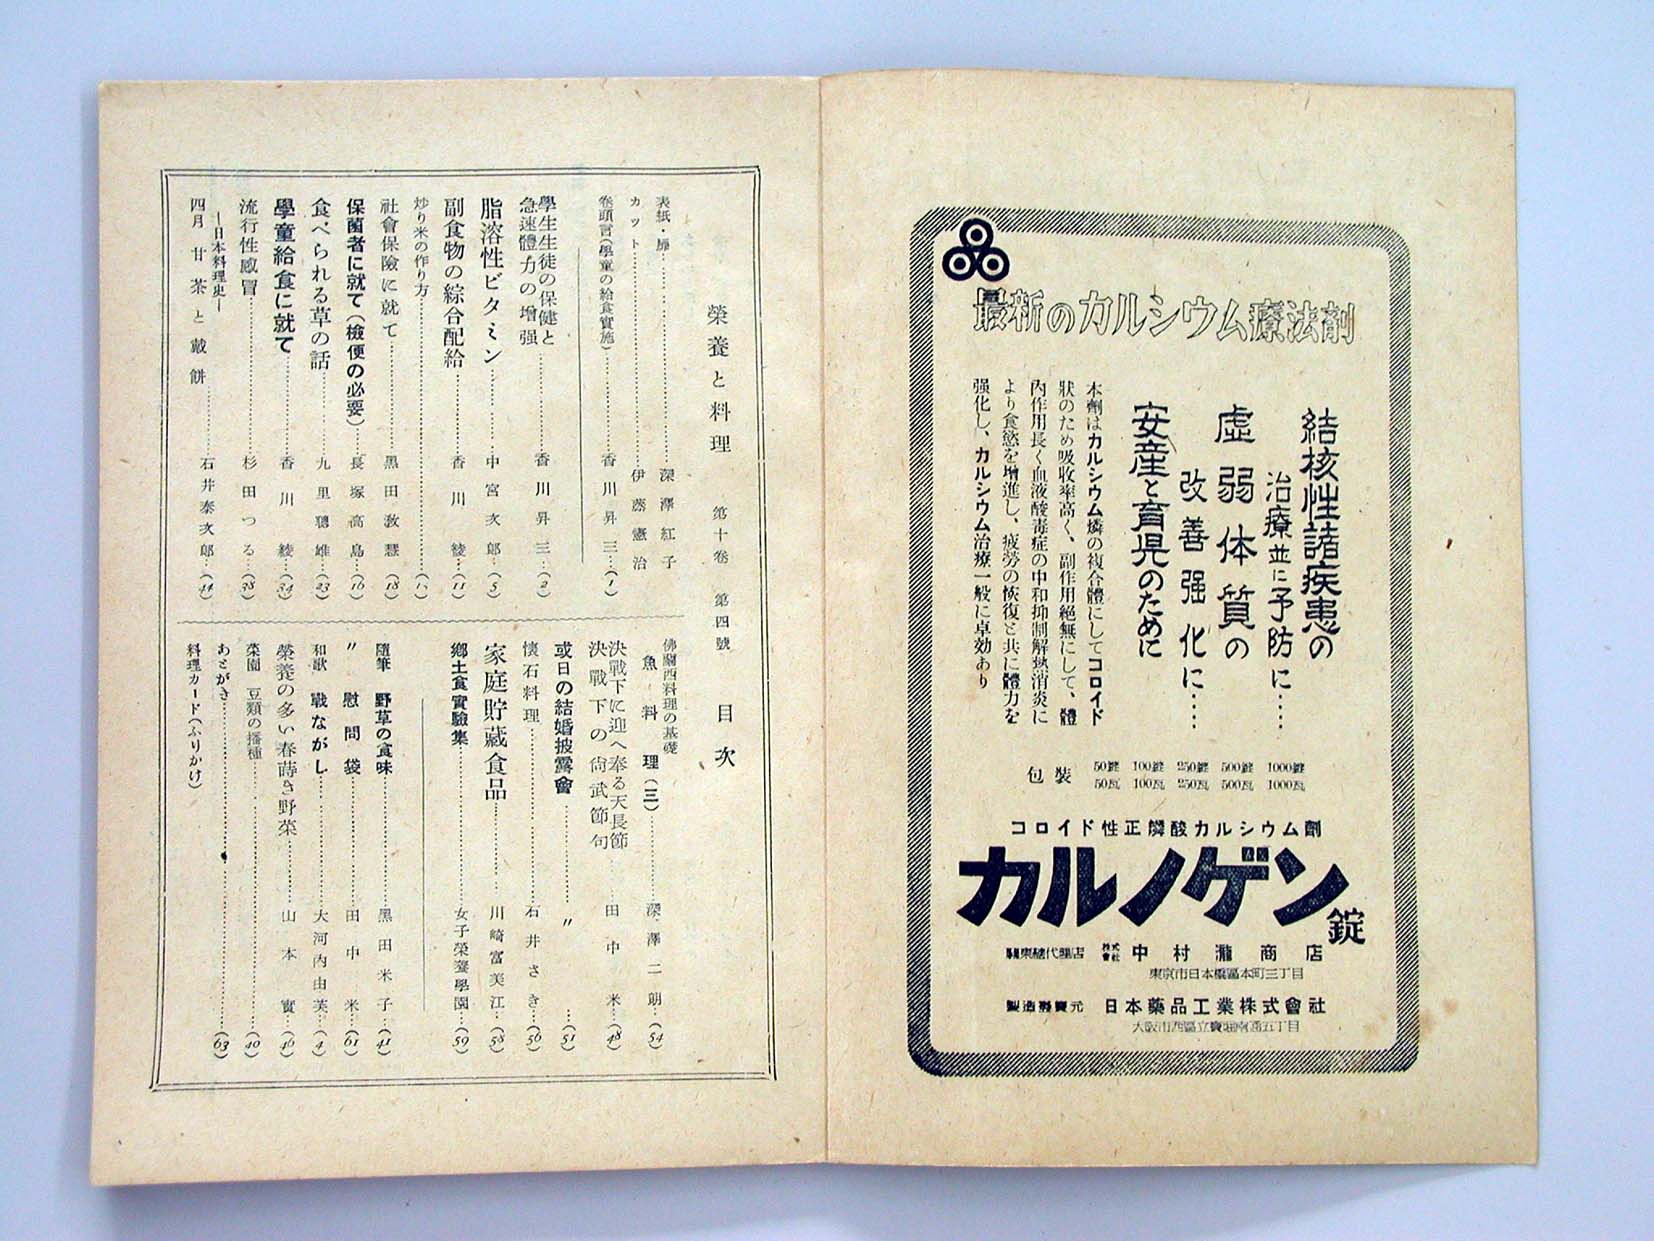 最新のカルシウム療法剤
結核性諸疾患の
治療並に予防に‥‥
虚弱体質の
改善強化に‥‥
安産と育児のために
本劑はカルシウム燐の複合體にしてコロイド
狀のため吸收率高く、副作用絕無にして、體
內作用長く血液酸毒症の中和抑制解熱消炎に
より食慾を增進し、疲勞の恢復と共に體力を
强化し、カルシウム治療一般に卓効あり
包裝
50錠 100錠 250錠 500錠 1000錠
50瓦 100瓦 250瓦 500瓦 1000瓦
コロイド性正燐酸カルシウム劑
カルノゲン錠
關東總代理店 株式會社 中村瀧商店
東京市日本橋區本町三丁目
製造發賣元 日本藥品工業株式會社
大阪市西區立賣堀南通五丁目
榮養と料理 第十卷 第四號 目次
表紙・扉‥‥深澤紅子
カット‥‥伊藤憲治
卷頭言(學童の給食實施)‥‥香川昇三‥(1)
學生生徒の保健と
急速體力の增强‥‥香川昇三‥(2)
脂溶性ビタミン‥‥中宮次郎‥(5)
副食物の綜合配給‥‥香川綾‥(11)
炒り米の作り方‥‥
社會保險に就て‥‥黑田敎慧‥(18)
保菌者に就て(檢便の必要)‥‥長塚高島‥(16)
食べられる草の話‥‥九里聰雄‥(23)
學童給食に就て‥‥香川綾‥(34)
流行性感冒‥‥杉田つる‥(38)
―日本料理史―
四月 甘茶と戴餅‥‥石井泰次郎‥
佛蘭西料理の基礎
魚料理(三)‥‥深澤二朗‥(54)
決戰下に迎へ奉る天長節
決戰下の尙武節句‥‥田中米‥(48)
或日の結婚披露會‥‥〃‥(51)
懷石料理‥‥石井さき‥(56)
家庭貯藏食品‥‥川崎富美江‥(58)
鄕土食實驗集‥‥女子榮養學園‥(59)
隨筆 野草の食味‥‥黑田米子‥(41)
〃 慰問袋‥‥田中米‥(61)
和歌 戰ながし‥‥大河內由芙‥(4)
榮養の多い春蒔き野菜‥‥山本實‥(46)
菜園 豆類の播種‥‥(40)
あとがき‥‥(63)
料理カード(ふりかけ)